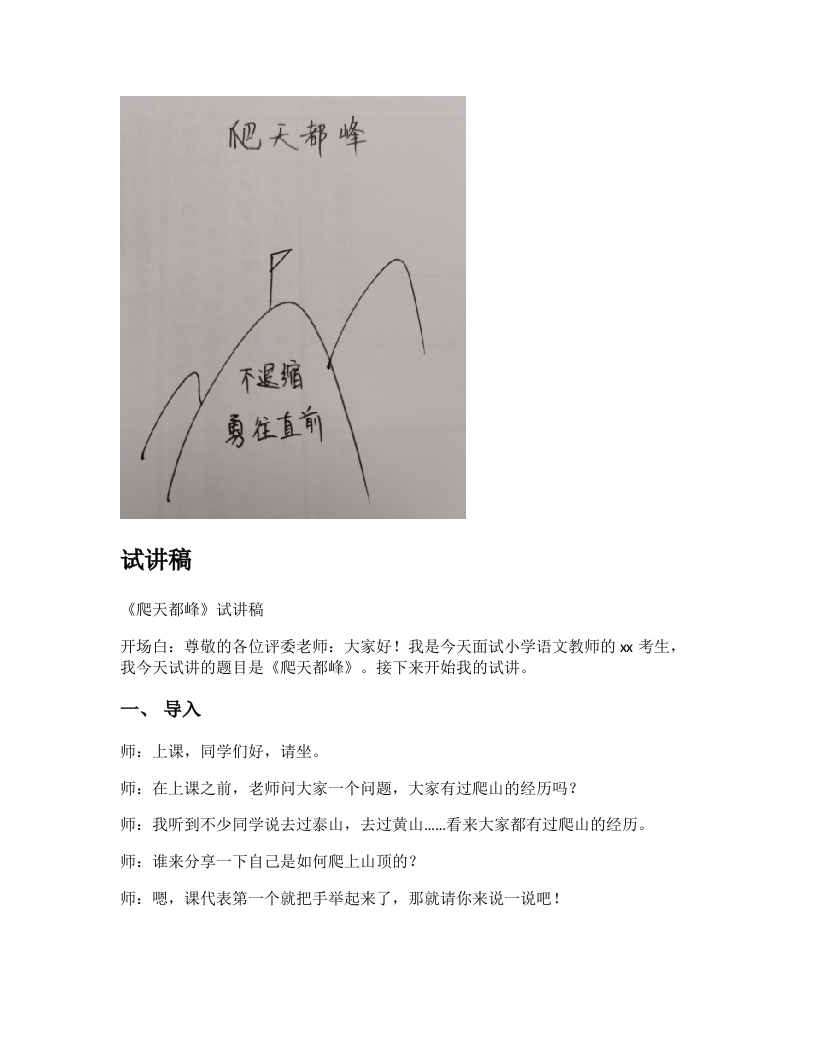 爬天都峰
不退缩
勇往直前
试讲稿
《爬天都峰》试讲稿
开场白：尊敬的各位评委老师：大家好！我是今天面试小学语文教师的 xx 考生，
我今天试讲的题目是《爬天都峰》。接下来开始我的试讲。
一、 导入
师：上课，同学们好，请坐。
师：在上课之前，老师问大家一个问题，大家有过爬山的经历吗？
师：我听到不少同学说去过泰山，去过黄山……看来大家都有过爬山的经历。
师：谁来分享一下自己是如何爬上山顶的？
师：嗯，课代表第一个就把手举起来了，那就请你来说一说吧！